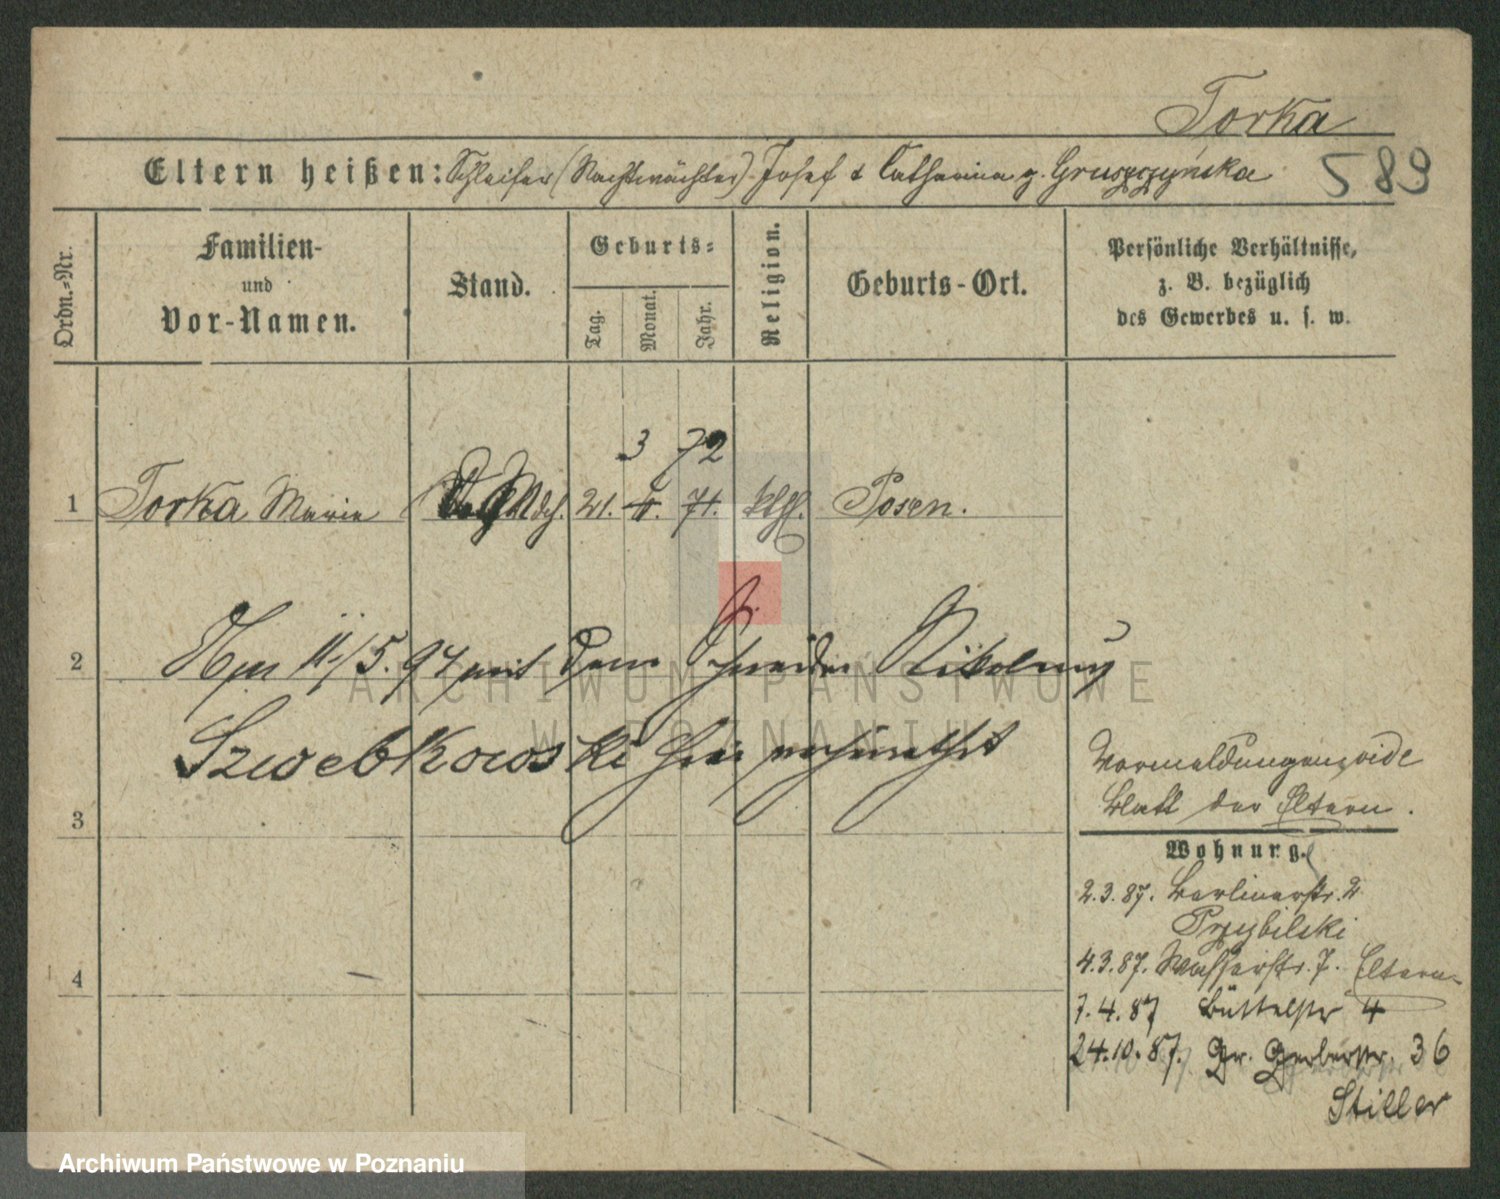 Torka
Eltern heißen: Schleifer (Nachtwächter) Josef & Catharina g. Gruszczyńska 589
Ordn.-Nr.
Familien-
und
Vor-Namen.
Stand.
Geburts-
Tag.
Monat.
Jahr.
Religion.
Geburts-Ort.
Persönliche Verhältnisse,
z. B. bezüglich
des Gewerbes u. s. w.
3 72
1 Torka Marie Mdch. 21. 4. 71. kthl. Posen.
2 11/5. 94 mit dem Schneider Nikolaus
Szwebkowski hier verheirathet
3
4
Vormeldungen siehe
Blatt der Eltern.
Wohnung.
2.3.87. Berlinerstr. 2
Przybilski
4.3.87. Wasserstr. 7. Eltern
7.4.87 Büttelstr 4
24.10.87. Gr. Gerberstr. 36
Stiller
ARCHIWUM PAŃSTWOWE
W POZNANIU
Archiwum Państwowe w Poznaniu